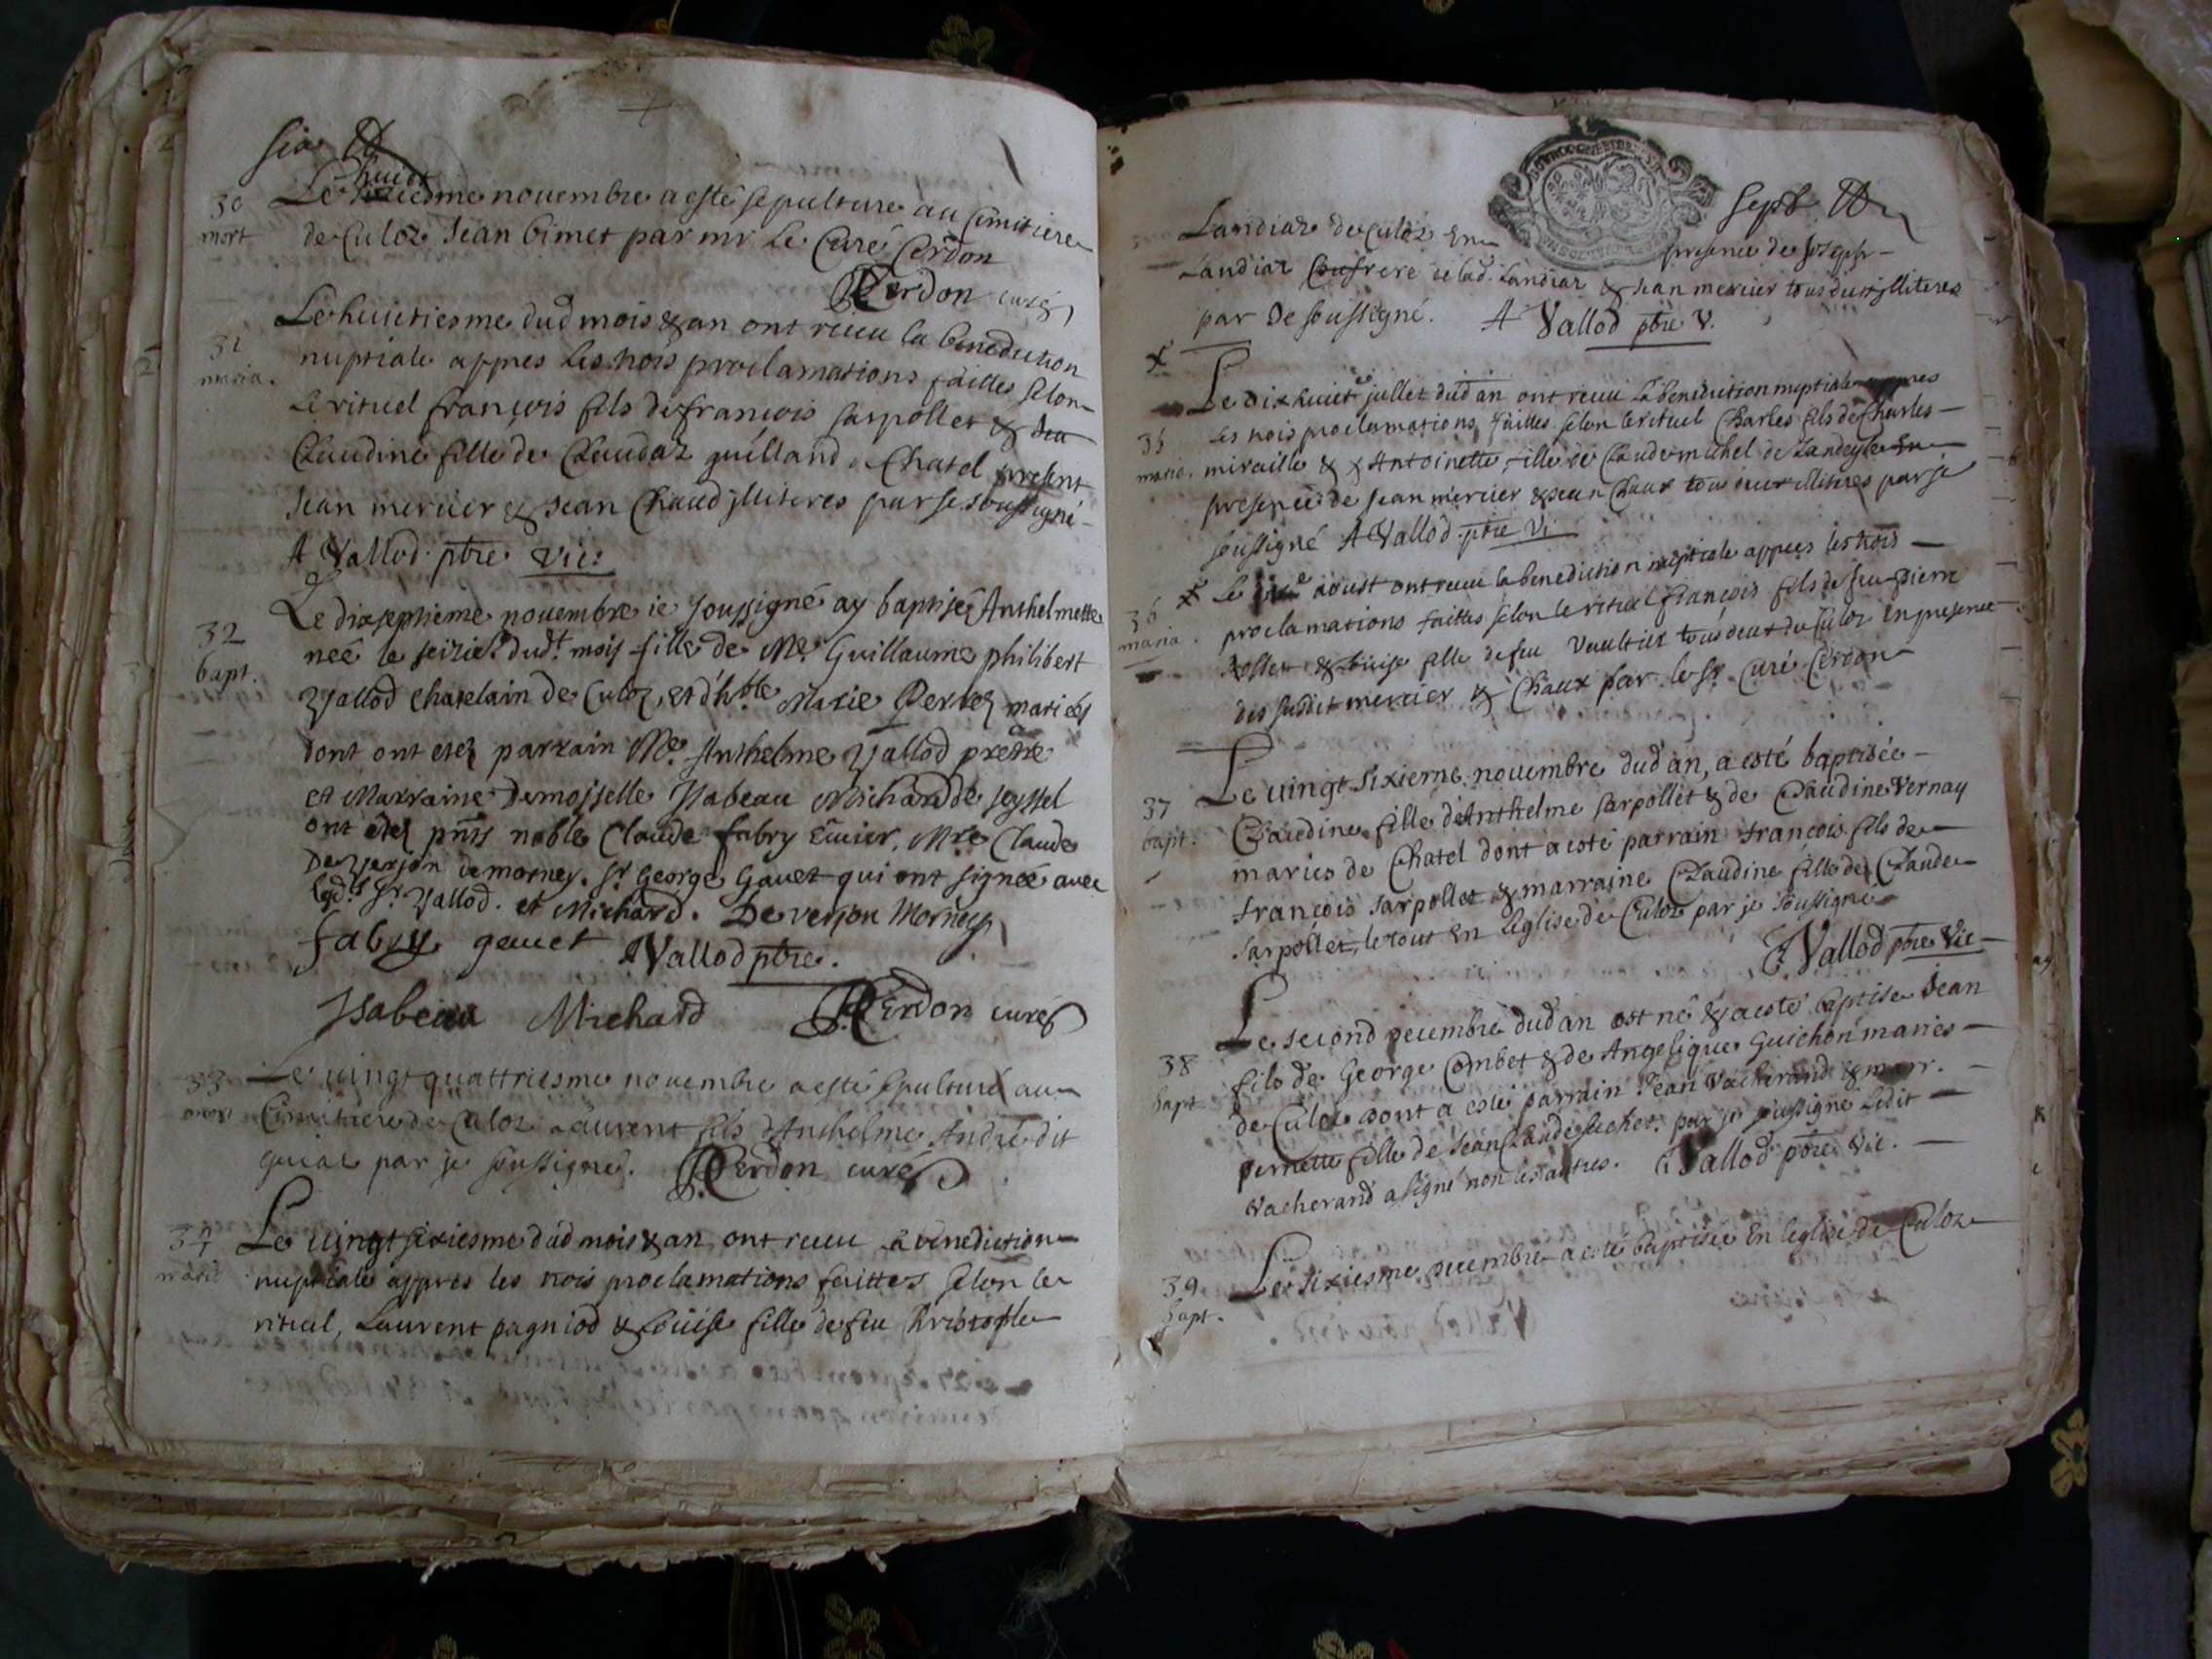 six
30
mort
huict
Le iesme novembre a esté sepulture au Cimitiere
de Culoz Jean bimet par mr Le Curé Cerdon
Cerdon curé
31
maria.
Le huictiesme dud mois & an ont receu la benediction
nuptiale appres les trois proclamations faittes selon
le rituel françois fils de françois sarpollet &
Claudine fille de Claudaz guilland, Chatel present
Jean mercier & Jean Chaud illiteres par je soussigné
A Vallod ptre vic:
32
bapt.
Le dixseptieme novembre ie soussigné ay baptisée Anthelmette
neé le seizie. dudt. mois fille de Me. Guillaume philibert
Vallod chatelain de Culoz, et d'hble. Marie mariés
dont ont etez parrain Me. Anthelme Vallod prestre
et Marraine Demoiselle Isabeau Michard de seyssel
ont etez pnts noble Claude fabry Ecuier, Mre Claude
De verjon demorney. sr George Gauet qui ont signée avec
led. Sr. Vallod. et Michard. De verjon Morney
fabry gauet Vallod ptre.
Isabeau Michard Cerdon curé
33
mort
Le vingtquattriesme novembre a esté sepulturé au
Cimittiere de Culoz Laurent fils d'Anthelme André dit
par je soussigné. Cerdon curé
34
marié
Le vingtsixiesme dud mois & an ont receu la benediction
nuptiale appres les trois proclamations faittes selon le
rituel, Laurent pagniod & Louise fille de feu Cristophle
sept
BOURGOGNE ET BRESSE
Landiaz de Culoz En presence de Joseph
Landiaz frere de lad. Landiaz & Jean mercier tous deux illiteres
par Je soussigné. A Vallod ptre V.
35
marié.
Le dixhuict jullet dud an ont receu la benediction nuptiale appres
les trois proclamations faittes selon le rituel Charles fils de Charles
miraille & Antoinette fille de Claude michel de Landeyle En
presence de Jean mercier & Jean Chaux tous deux illiteres par je
soussigné A Vallod ptre Vi
36
maria.
Le aoust ont receu la benediction nuptiale appres les trois
proclamations faittes selon le rituel françois fils de feu pierre
Rosset & Louise fille de feu Vaultier tous deux de Culoz En presence
des susdit mercier & Chaux par le sr Curé Cerdon
37
bapt.
Le vingt sixieme novembre dud an, a esté baptisée
Claudine fille d'Anthelme sarpollet & de Claudine Vernay
mariés de Chatel dont a esté parrain françois fils de
françois sarpollet & marraine Claudine fille de Claude
sarpollet, le tout En leglise de Culoz par je soussigné
A Vallod ptre Vic
38
bapt
Le second decembre dud an est né & a esté baptise Jean
fils de George Combet & de Angelique Guichon mariés
de Culoz dont a esté parrain Jean Vacherand & marr.
pernette fille de Jean Claude suchet. par je soussigne Ledit
Vacherand a signé non les autres. A Vallod ptre Vic.
39
bapt.
Le sixiesme decembre a esté baptisée En leglise de Culoz